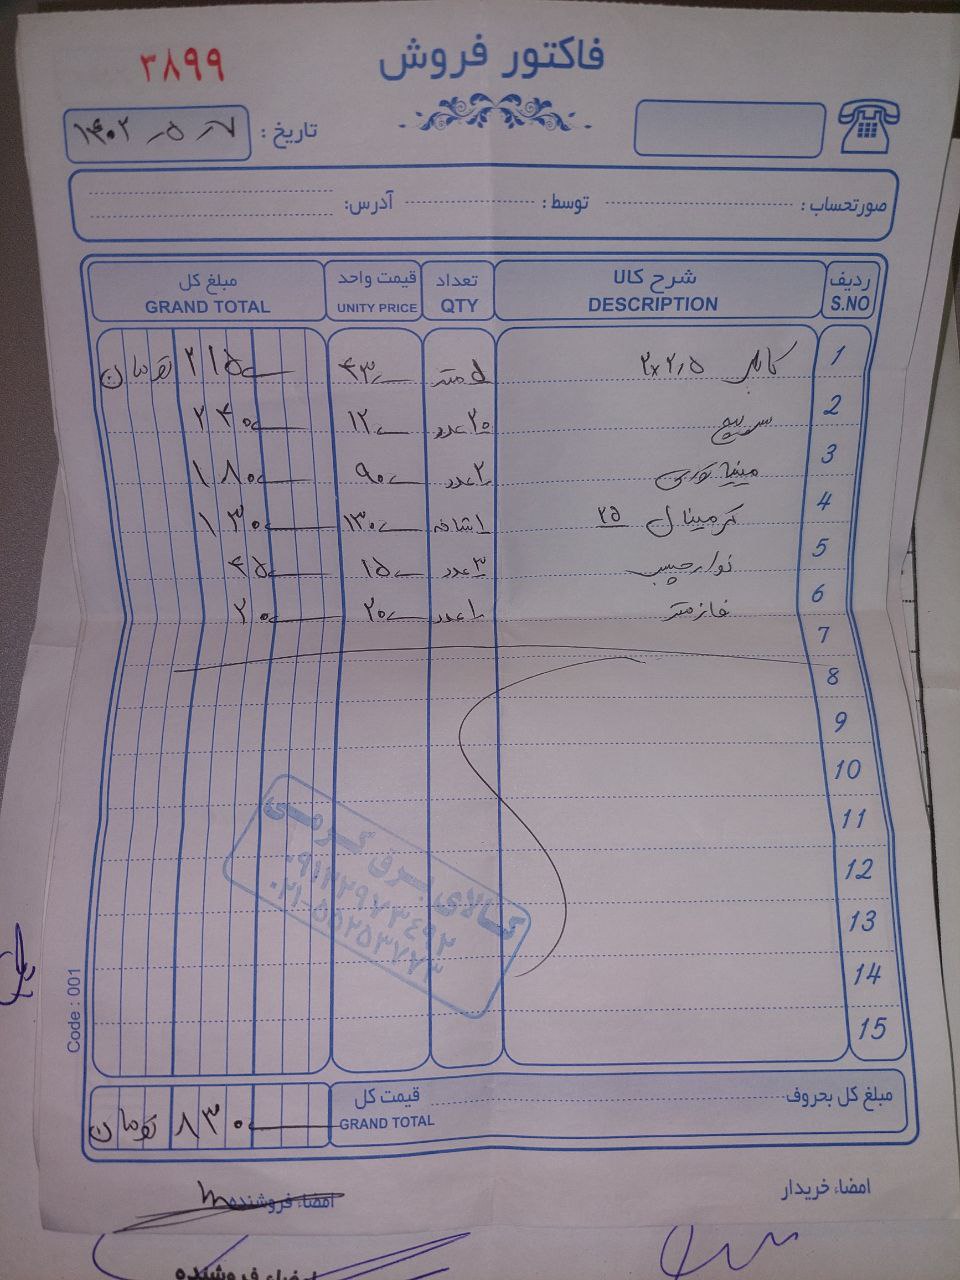 فاکتور فروش
۳۸۹۹
تاریخ : ۱۴۰۲/۵/۷
صورتحساب : توسط : آدرس:
ردیف شرح کالا تعداد قیمت واحد مبلغ کل
S.NO DESCRIPTION QTY UNITY PRICE GRAND TOTAL
1 کابل ۲×۲/۵ ۵ متر ۴۳ ۲۱۵ تومان
2 ۲۰ عدد ۱۲ ۲۴۰
3 مینیاتوری ۲ عدد ۹۰ ۱۸۰
4 ترمینال ۲۵ ۱ شاخه ۱۳۰ ۱۳۰
5 نوار چسب ۳ عدد ۱۵ ۴۵
6 فازمتر ۱ عدد ۲۰ ۲۰
7
8
9
10
11
12
13
14
15
کالای برق کرمی
۰۹۱۲۲۹۷۳۴۹۲
۰۲۱-۵۵۲۵۳۷۷۳
Code : 001
مبلغ کل بحروف قیمت کل
GRAND TOTAL ۸۳۰ تومان
امضاء خریدار امضاء فروشنده
امضاء فروشنده